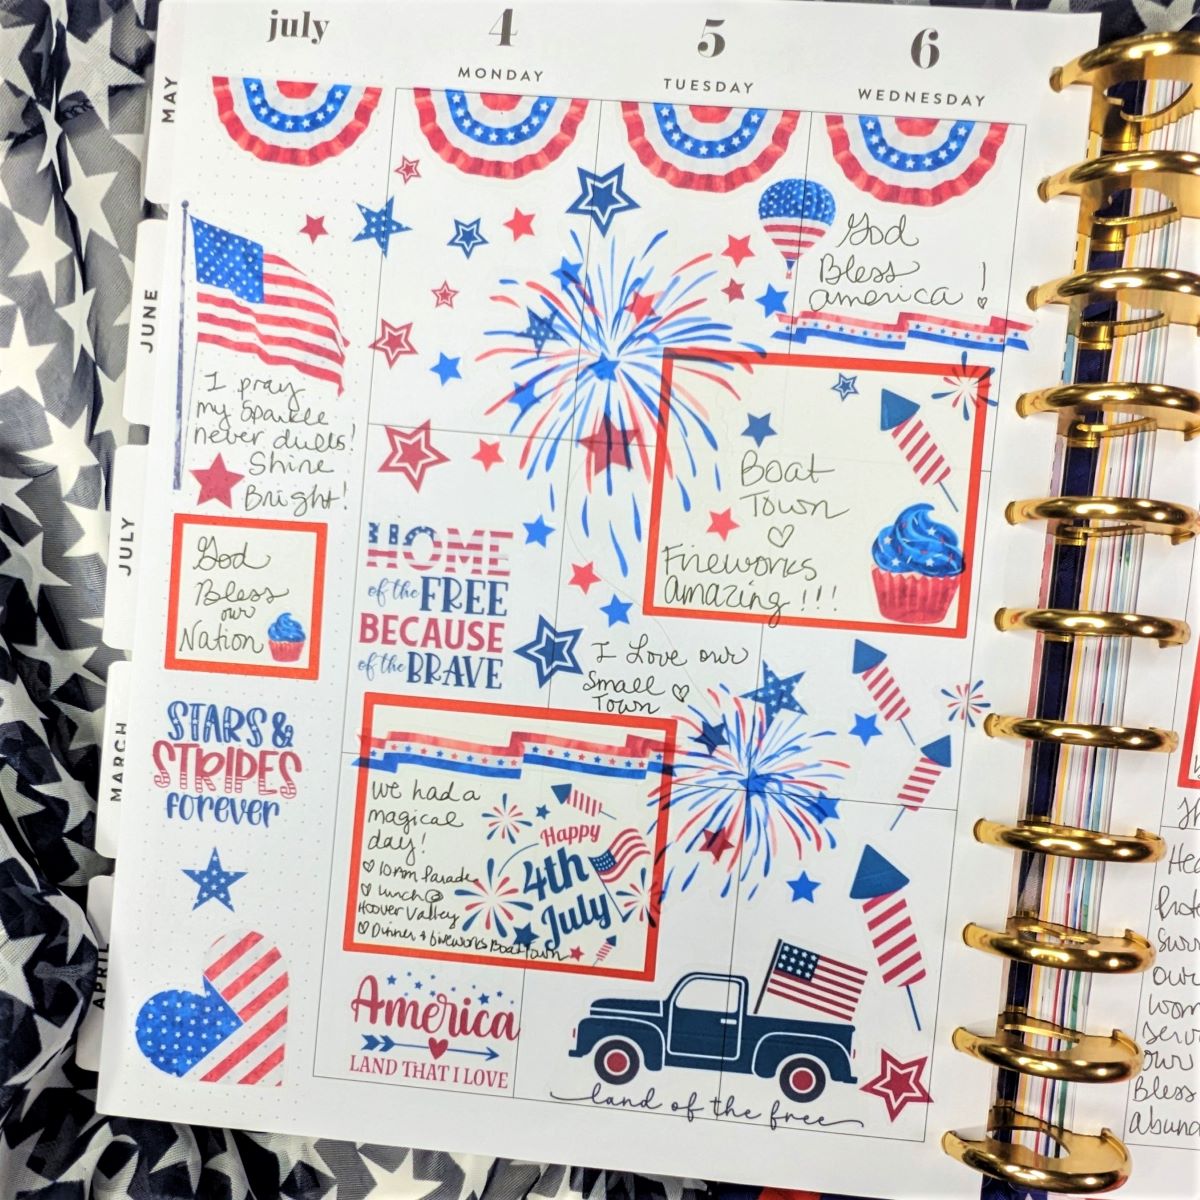 july
4
MONDAY
5
TUESDAY
6
WEDNESDAY
MAY
JUNE
JULY
MARCH
APRIL
I pray
my Sparkle
never dulls!
Shine
Bright!
God
Bless
our
Nation
STARS &
STRIPES
forever
HOME
of the FREE
BECAUSE
of the BRAVE
we had a
magical
day!
♡ 10Am Parade
♡ Lunch @
Hoover Valley
♡ Dinner & fireworks Boat Town
Happy
4th
July
America
LAND THAT I LOVE
God
Bless
america !
Boat
Town
♡
Fireworks
Amazing!!!
I Love our
Small ♡
Town
land of the free
our
Bless